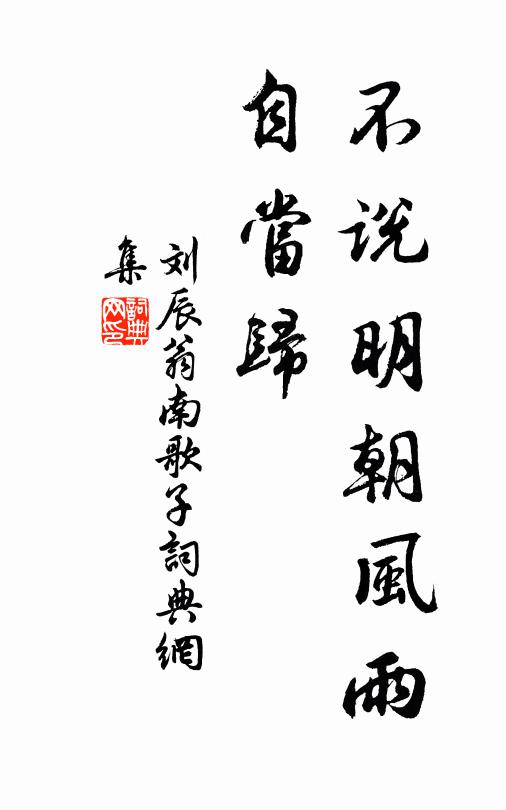 不說明朝風雨
自當歸
刘辰翁南歌子詞典網
集
詞典网印